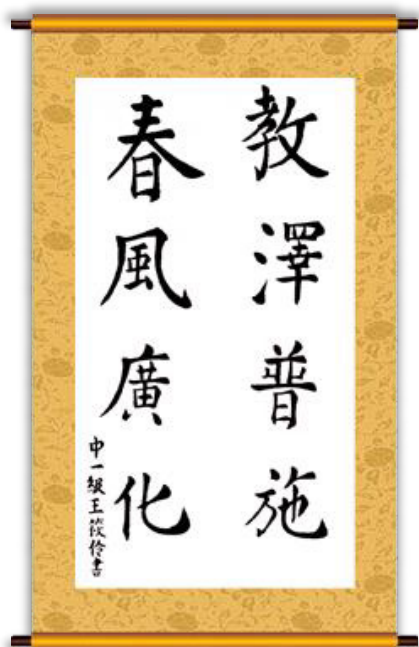 教澤普施
春風廣化
中一級王筱伶書